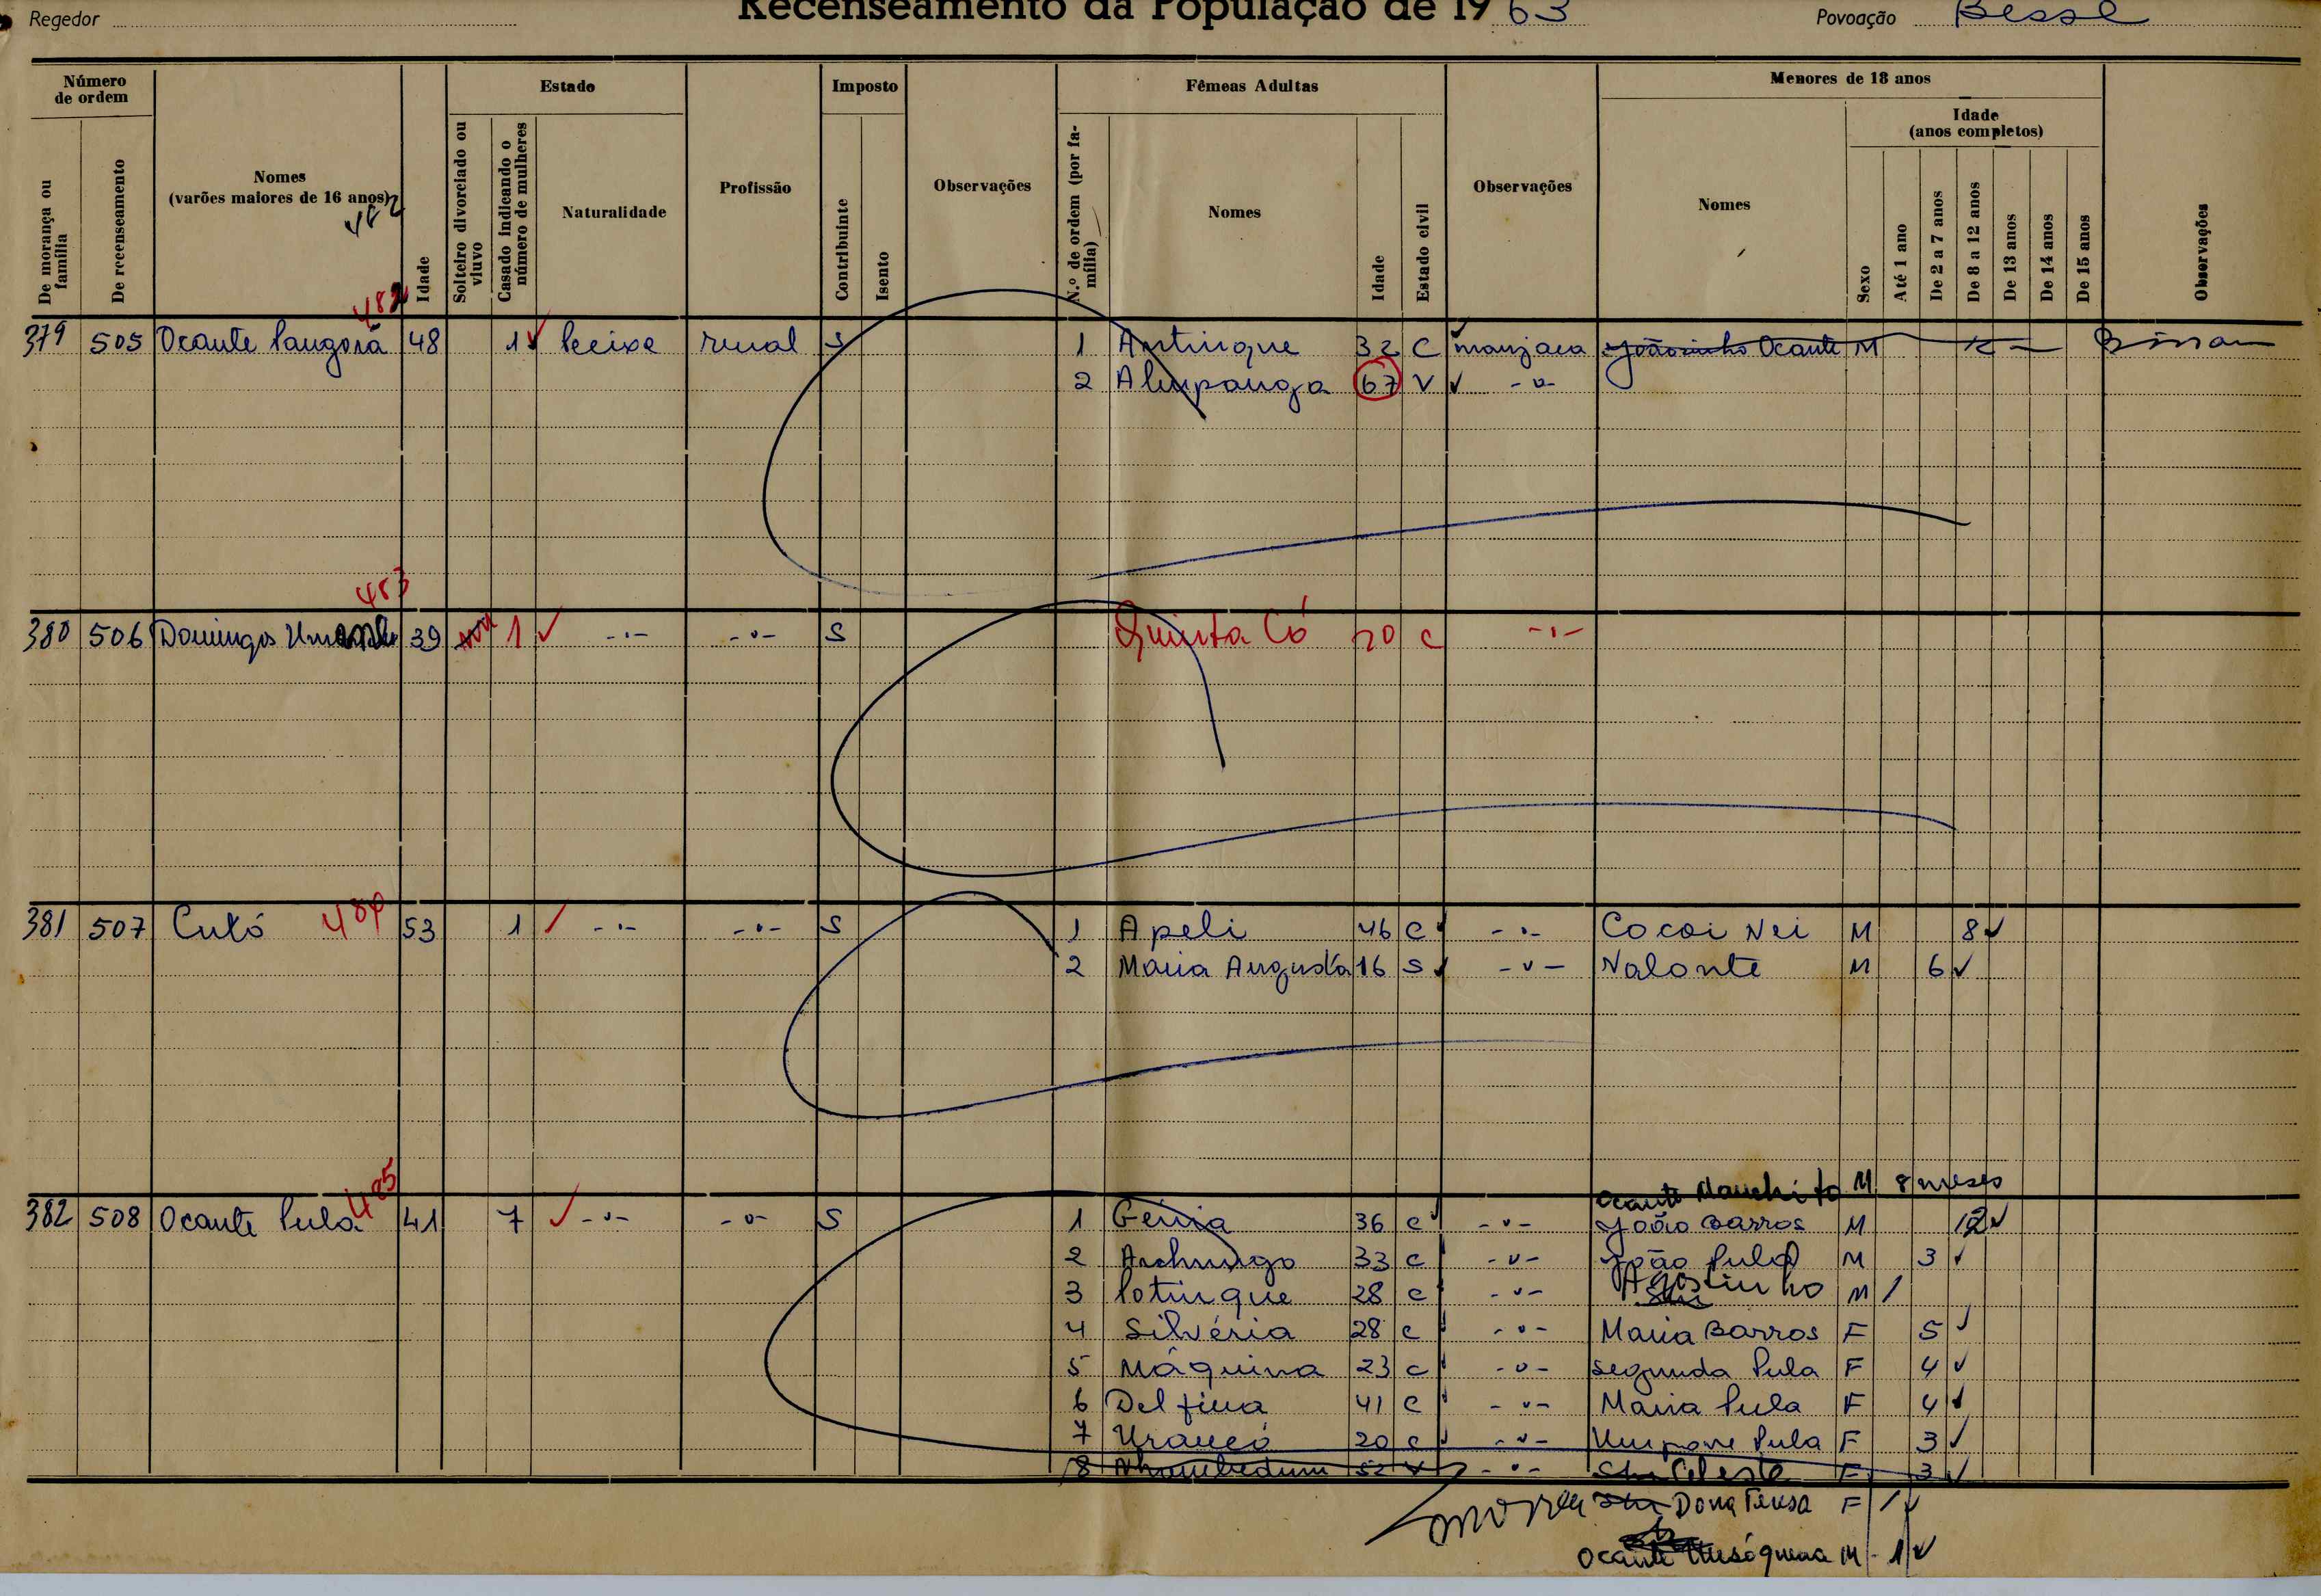 Regedor
Recenseamento da População de 1963
Povoação Besse
Número de ordem
De morança ou família
De recenseamento
Nomes (varões maiores de 16 anos)
482
Idade
Estado
Solteiro divorciado ou viuvo
Casado indicando o número de mulheres
Naturalidade
Profissão
Imposto
Contribuinte
Isento
Observações
Fêmeas Adultas
N.º de ordem (por família)
Nomes
Idade
Estado civil
Observações
Menores de 18 anos
Nomes
Sexo
Idade (anos completos)
Até 1 ano
De 2 a 7 anos
De 8 a 12 anos
De 13 anos
De 14 anos
De 15 anos
Observações
482
379 505 Ocante 48 1 rural S 1 Antinque 32 C manjaca Joãosinho Ocante M
2 67 V -"-
483
380 506 Domingos 39 1 -"- -"- S Quinta Có 20 C -"-
381 507 Cutó 484 53 1 -"- -"- S 1 Apeli 46 C -"- Cocoi Nei M 8
2 Maria Augusta 16 S -"- Nalonte M 6
485
Ocante Manchito M 8 meses
382 508 Ocante Pula 41 7 -"- -"- S 1 36 C -"- João Barros M 12
2 33 C -"- João Pula M 3
3 Potinque 28 C -"- Agostinho M /
4 Silvéria 28 C -"- Maria Barros F 5
5 Máquina 23 C -"- Segunda Pula F 4
6 Delfina 41 C -"- Maria Pula F 4
7 20 C -"- Pula F 3
8 52 V -"- Celeste F 3
Dona Teresa F /
Ocante M - 1